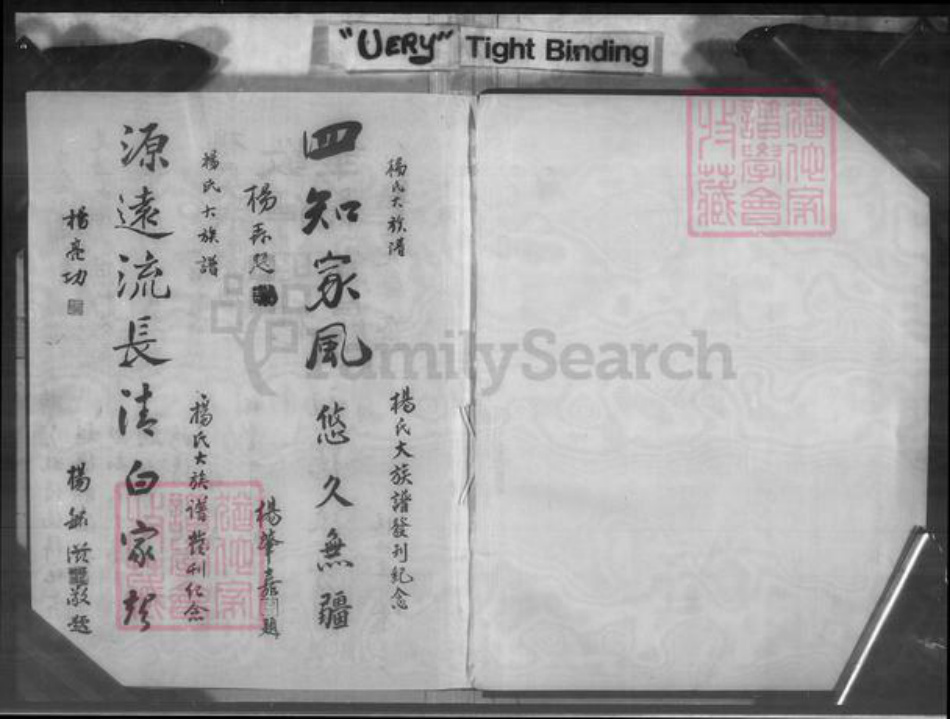 "VERY" Tight Binding
楊氏大族譜
四知家風
楊森題
楊氏大族譜發刊紀念
悠久無疆
楊肇嘉題
楊氏大族譜
源遠流長
楊亮功
楊氏大族譜發刊紀念
清白家聲
楊
敬題
FamilySearch
譜學會
收藏